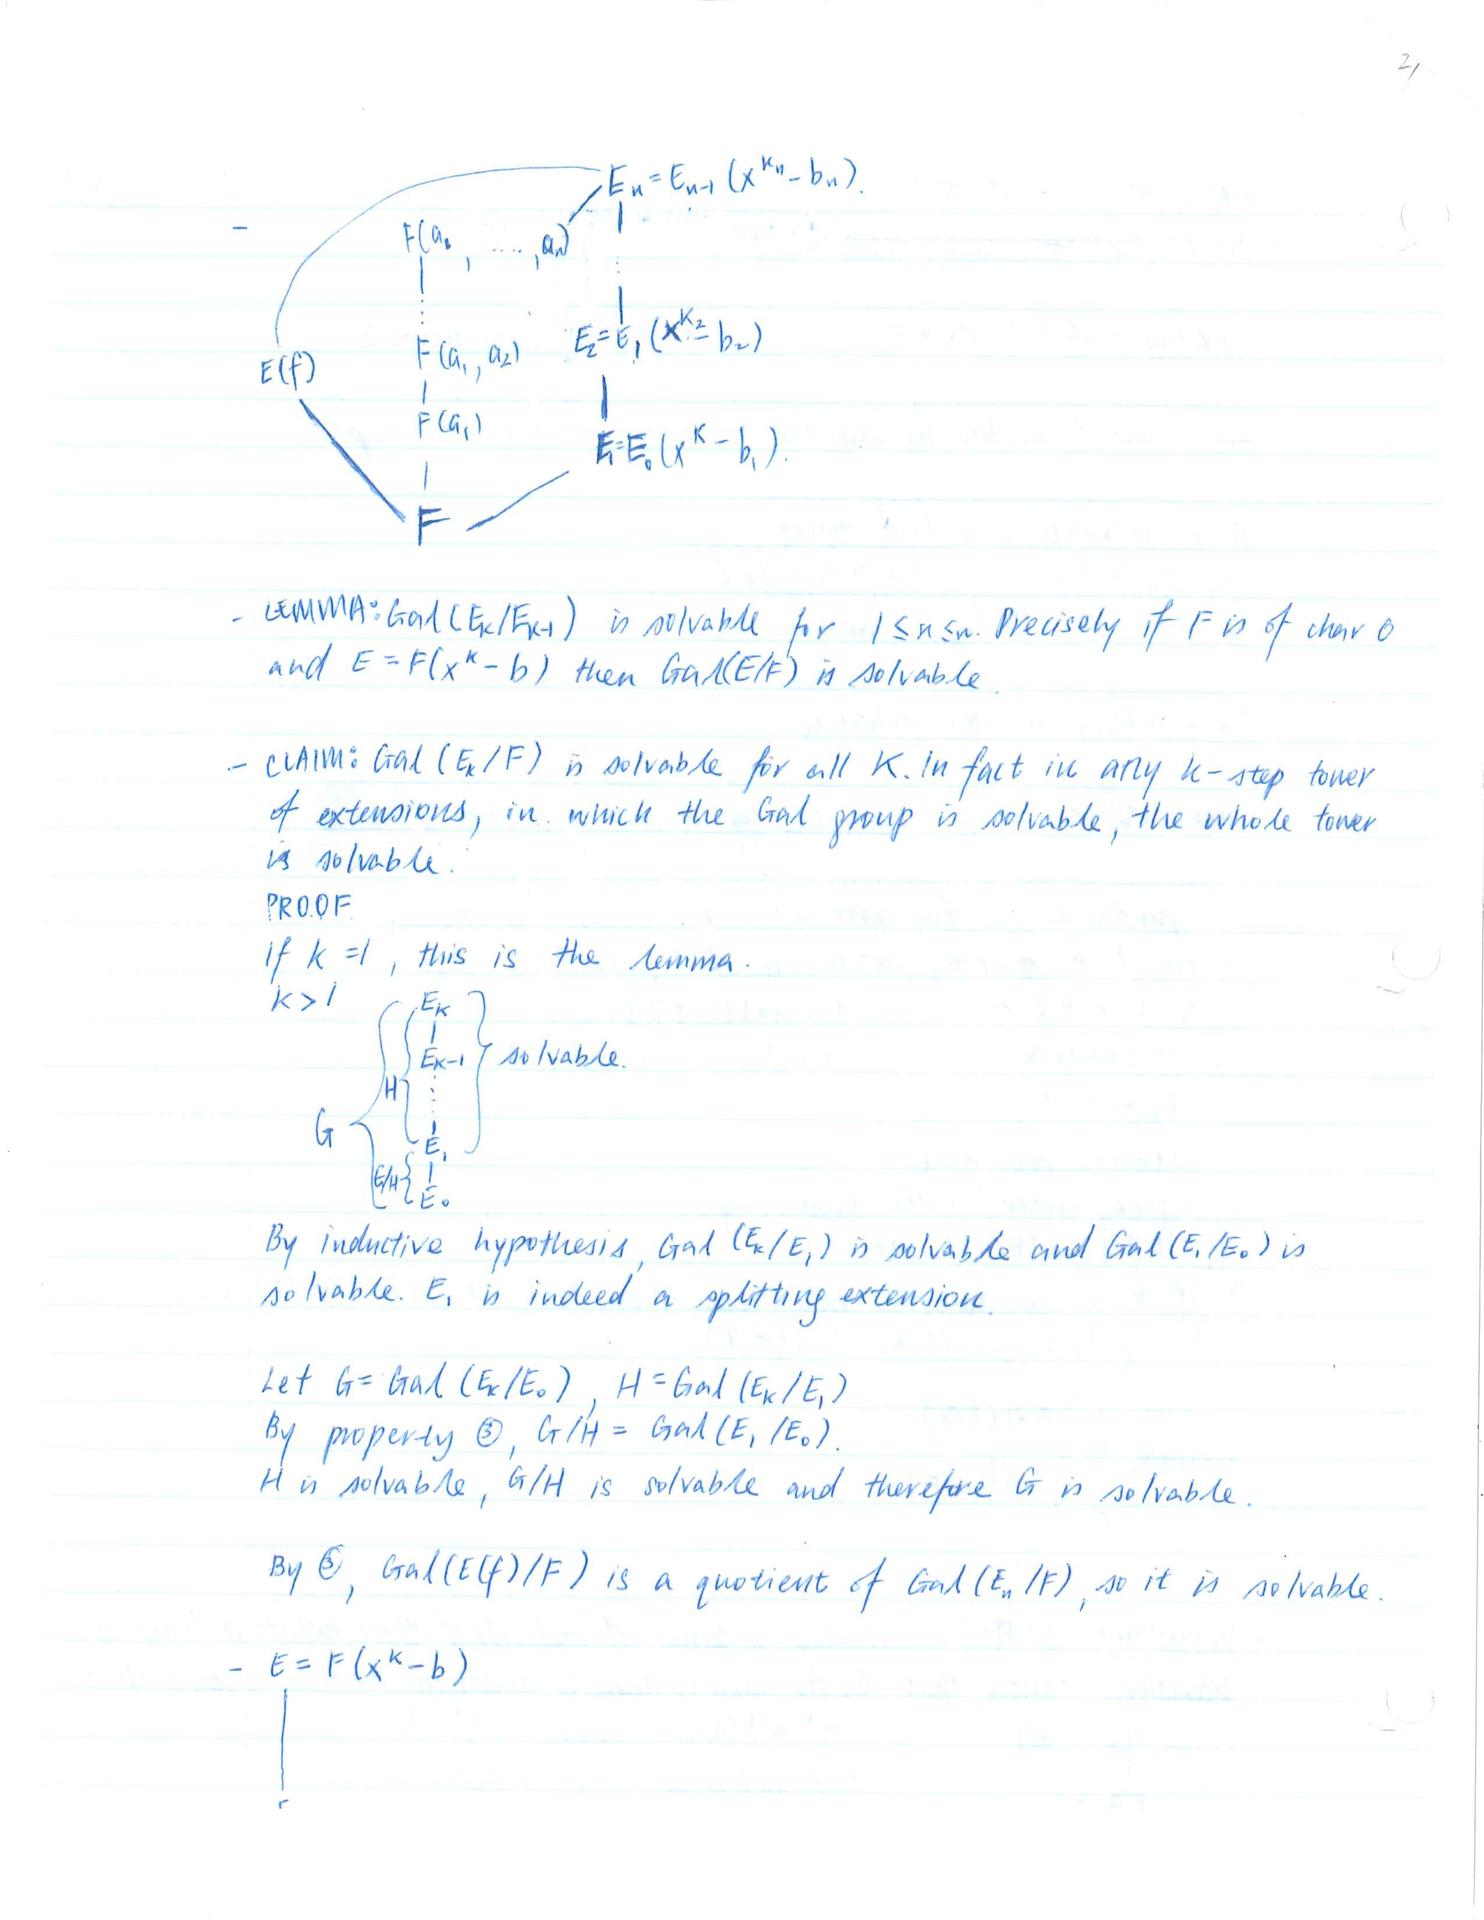 2,
E_n = E_{n-1} (x^{k_n} - b_n).
- F(a_0, ....., a_n)
E_2 = E_1 (x^{k_2} - b_2)
E(f) F(a_1, a_2)
F(a_1)
E_1 = E_0 (x^k - b_1).
F
- LEMMA: Gal (E_k/E_{k-1}) is solvable for 1 ≤ n ≤ n. Precisely if F is of char 0
and E = F(x^k - b) then Gal(E/F) is solvable
- CLAIM: Gal (E_k/F) is solvable for all K. In fact in any k-step tower
of extensions, in which the Gal group is solvable, the whole tower
is solvable.
PROOF
if k = 1, this is the lemma.
k > 1
E_k
E_{k-1} solvable.
H
G
E_1
E/H
E_0
By inductive hypothesis, Gal (E_k/E_1) is solvable and Gal (E_1/E_0) is
solvable. E_1 is indeed a splitting extension.
Let G = Gal (E_k/E_0), H = Gal (E_k/E_1)
By property ③, G/H = Gal (E_1/E_0).
H is solvable, G/H is solvable and therefore G is solvable.
By ③, Gal(E(f)/F) is a quotient of Gal (E_n/F), so it is solvable.
- E = F(x^k - b)